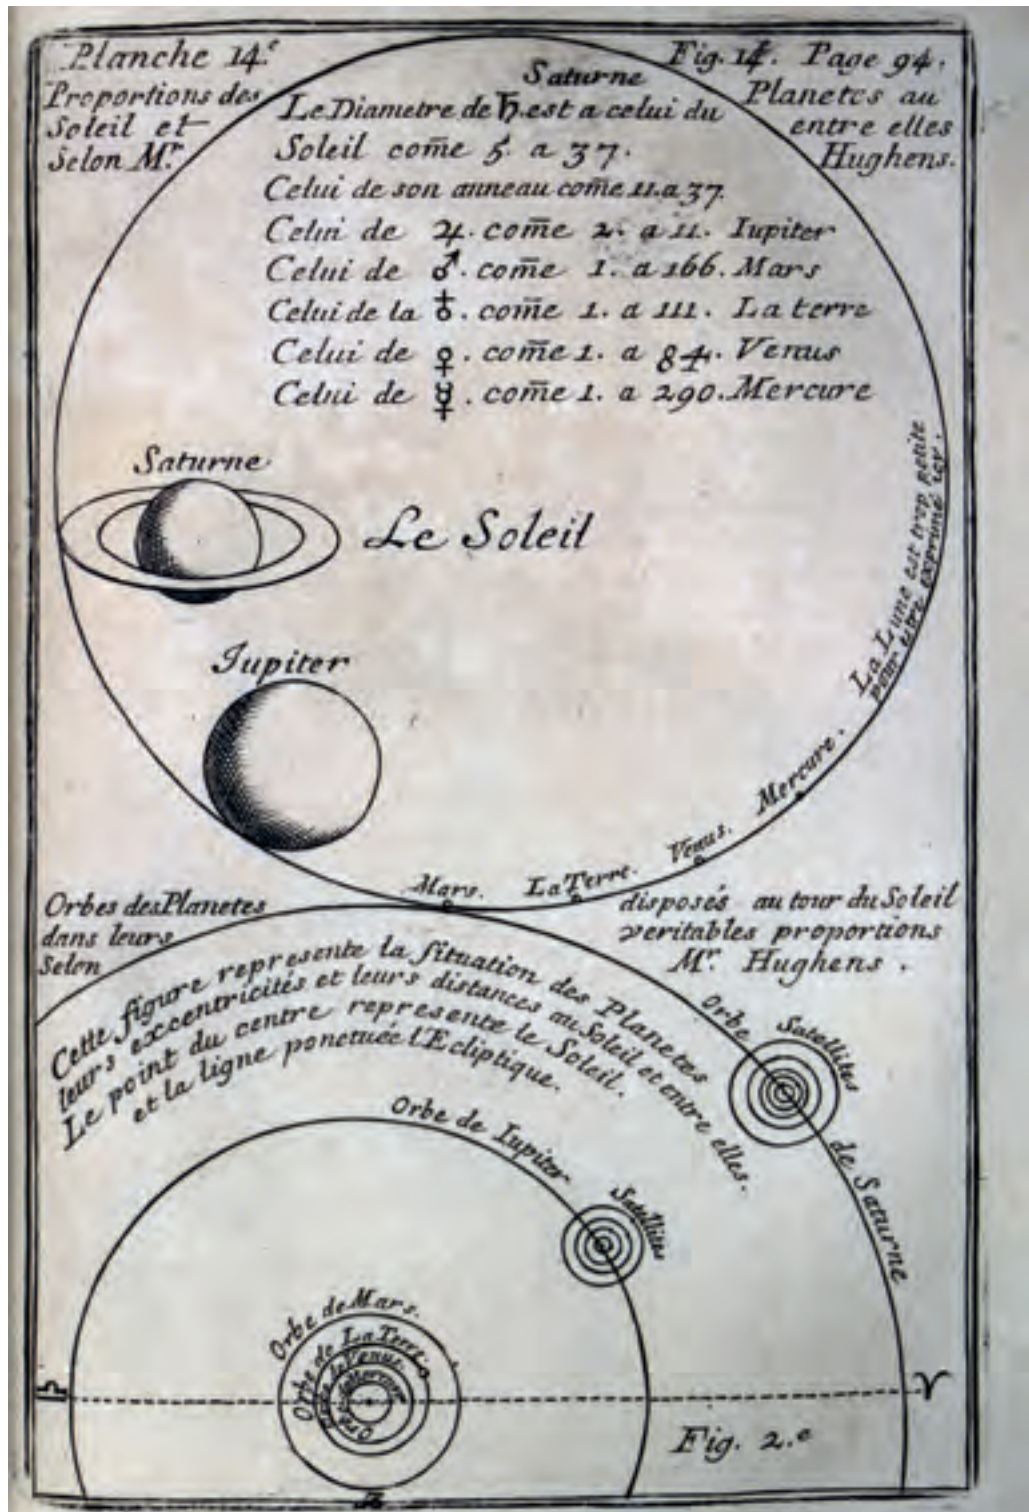 Planche 14.e
Fig. 1e. Page 94.
Proportions des Planetes au
Soleil et entre elles
Selon M.r Hughens.
Saturne
Le Diametre de ♄. est a celui du
Soleil com̄e 5. a 37.
Celui de son anneau com̄e 11. a 37.
Celui de ♃. com̄e 2. a 11. Iupiter
Celui de ♂. com̄e 1. a 166. Mars
Celui de la ♁. com̄e 1. a 111. La terre
Celui de ♀. com̄e 1. a 84. Venus
Celui de ☿. com̄e 1. a 290. Mercure
Saturne
Le Soleil
Iupiter
La Lune est trop petite
pour estre exprimé icy.
Mercure.
Venus.
La Terre.
Mars.
Orbes des Planetes disposés au tour du Soleil
dans leurs veritables proportions
Selon M.r Hughens.
Cette figure represente la situation des Planetes
leurs excentricités et leurs distances au Soleil et entre elles.
Le point du centre represente le Soleil.
et la ligne ponctuée l'Ecliptique.
Orbe de Saturne
Satellites
Orbe de Iupiter
Satellites
Orbe de Mars.
Orbe de La Terre.
Orbe de Venus.
Orbe de Mercure
♎
♈
Fig. 2.e